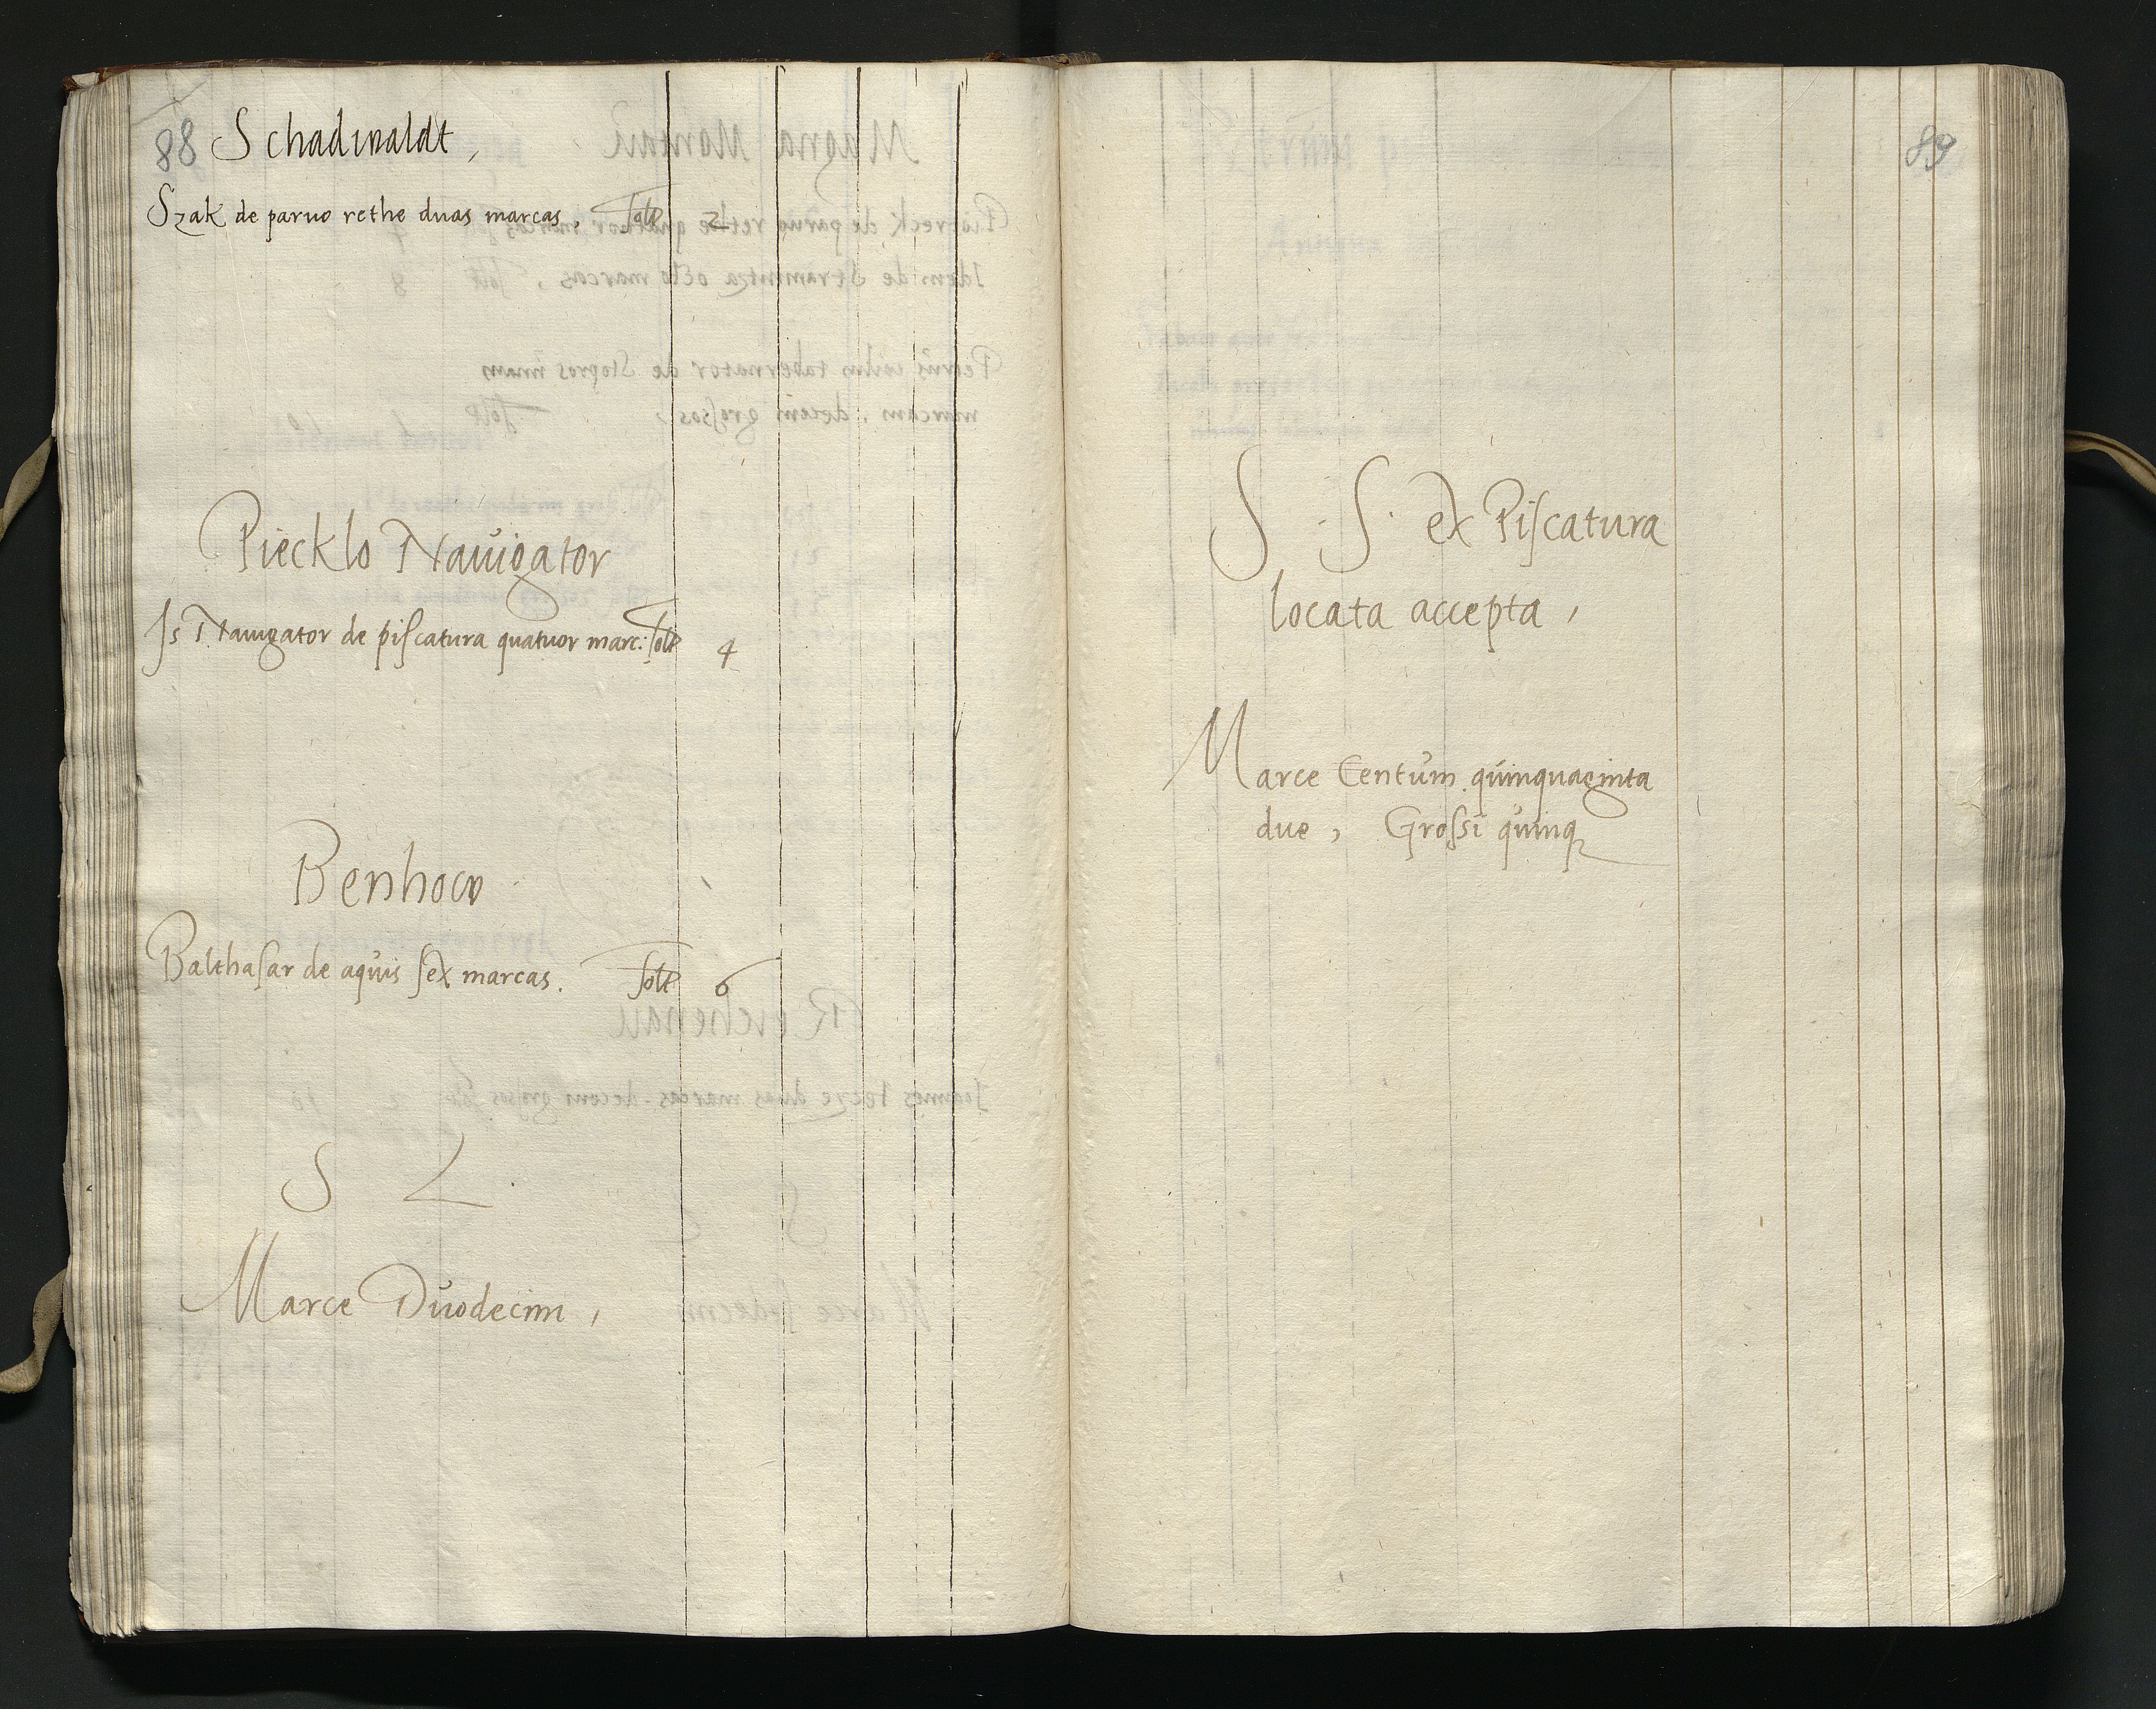 88 Schadwaldt,
Szak de paruo rethe duas marcas. solt 2
Piecklo Nauigator
Is Nauigator de piscatura quatuor marc: solt 4
Benhoco
Balthasar de aquis sex marcas. solt 6
S L
Marce Duodecim,
89
S. S. ex Piscatura
locata accepta,
Marce Centum quinquaginta
due, Grossi quinq